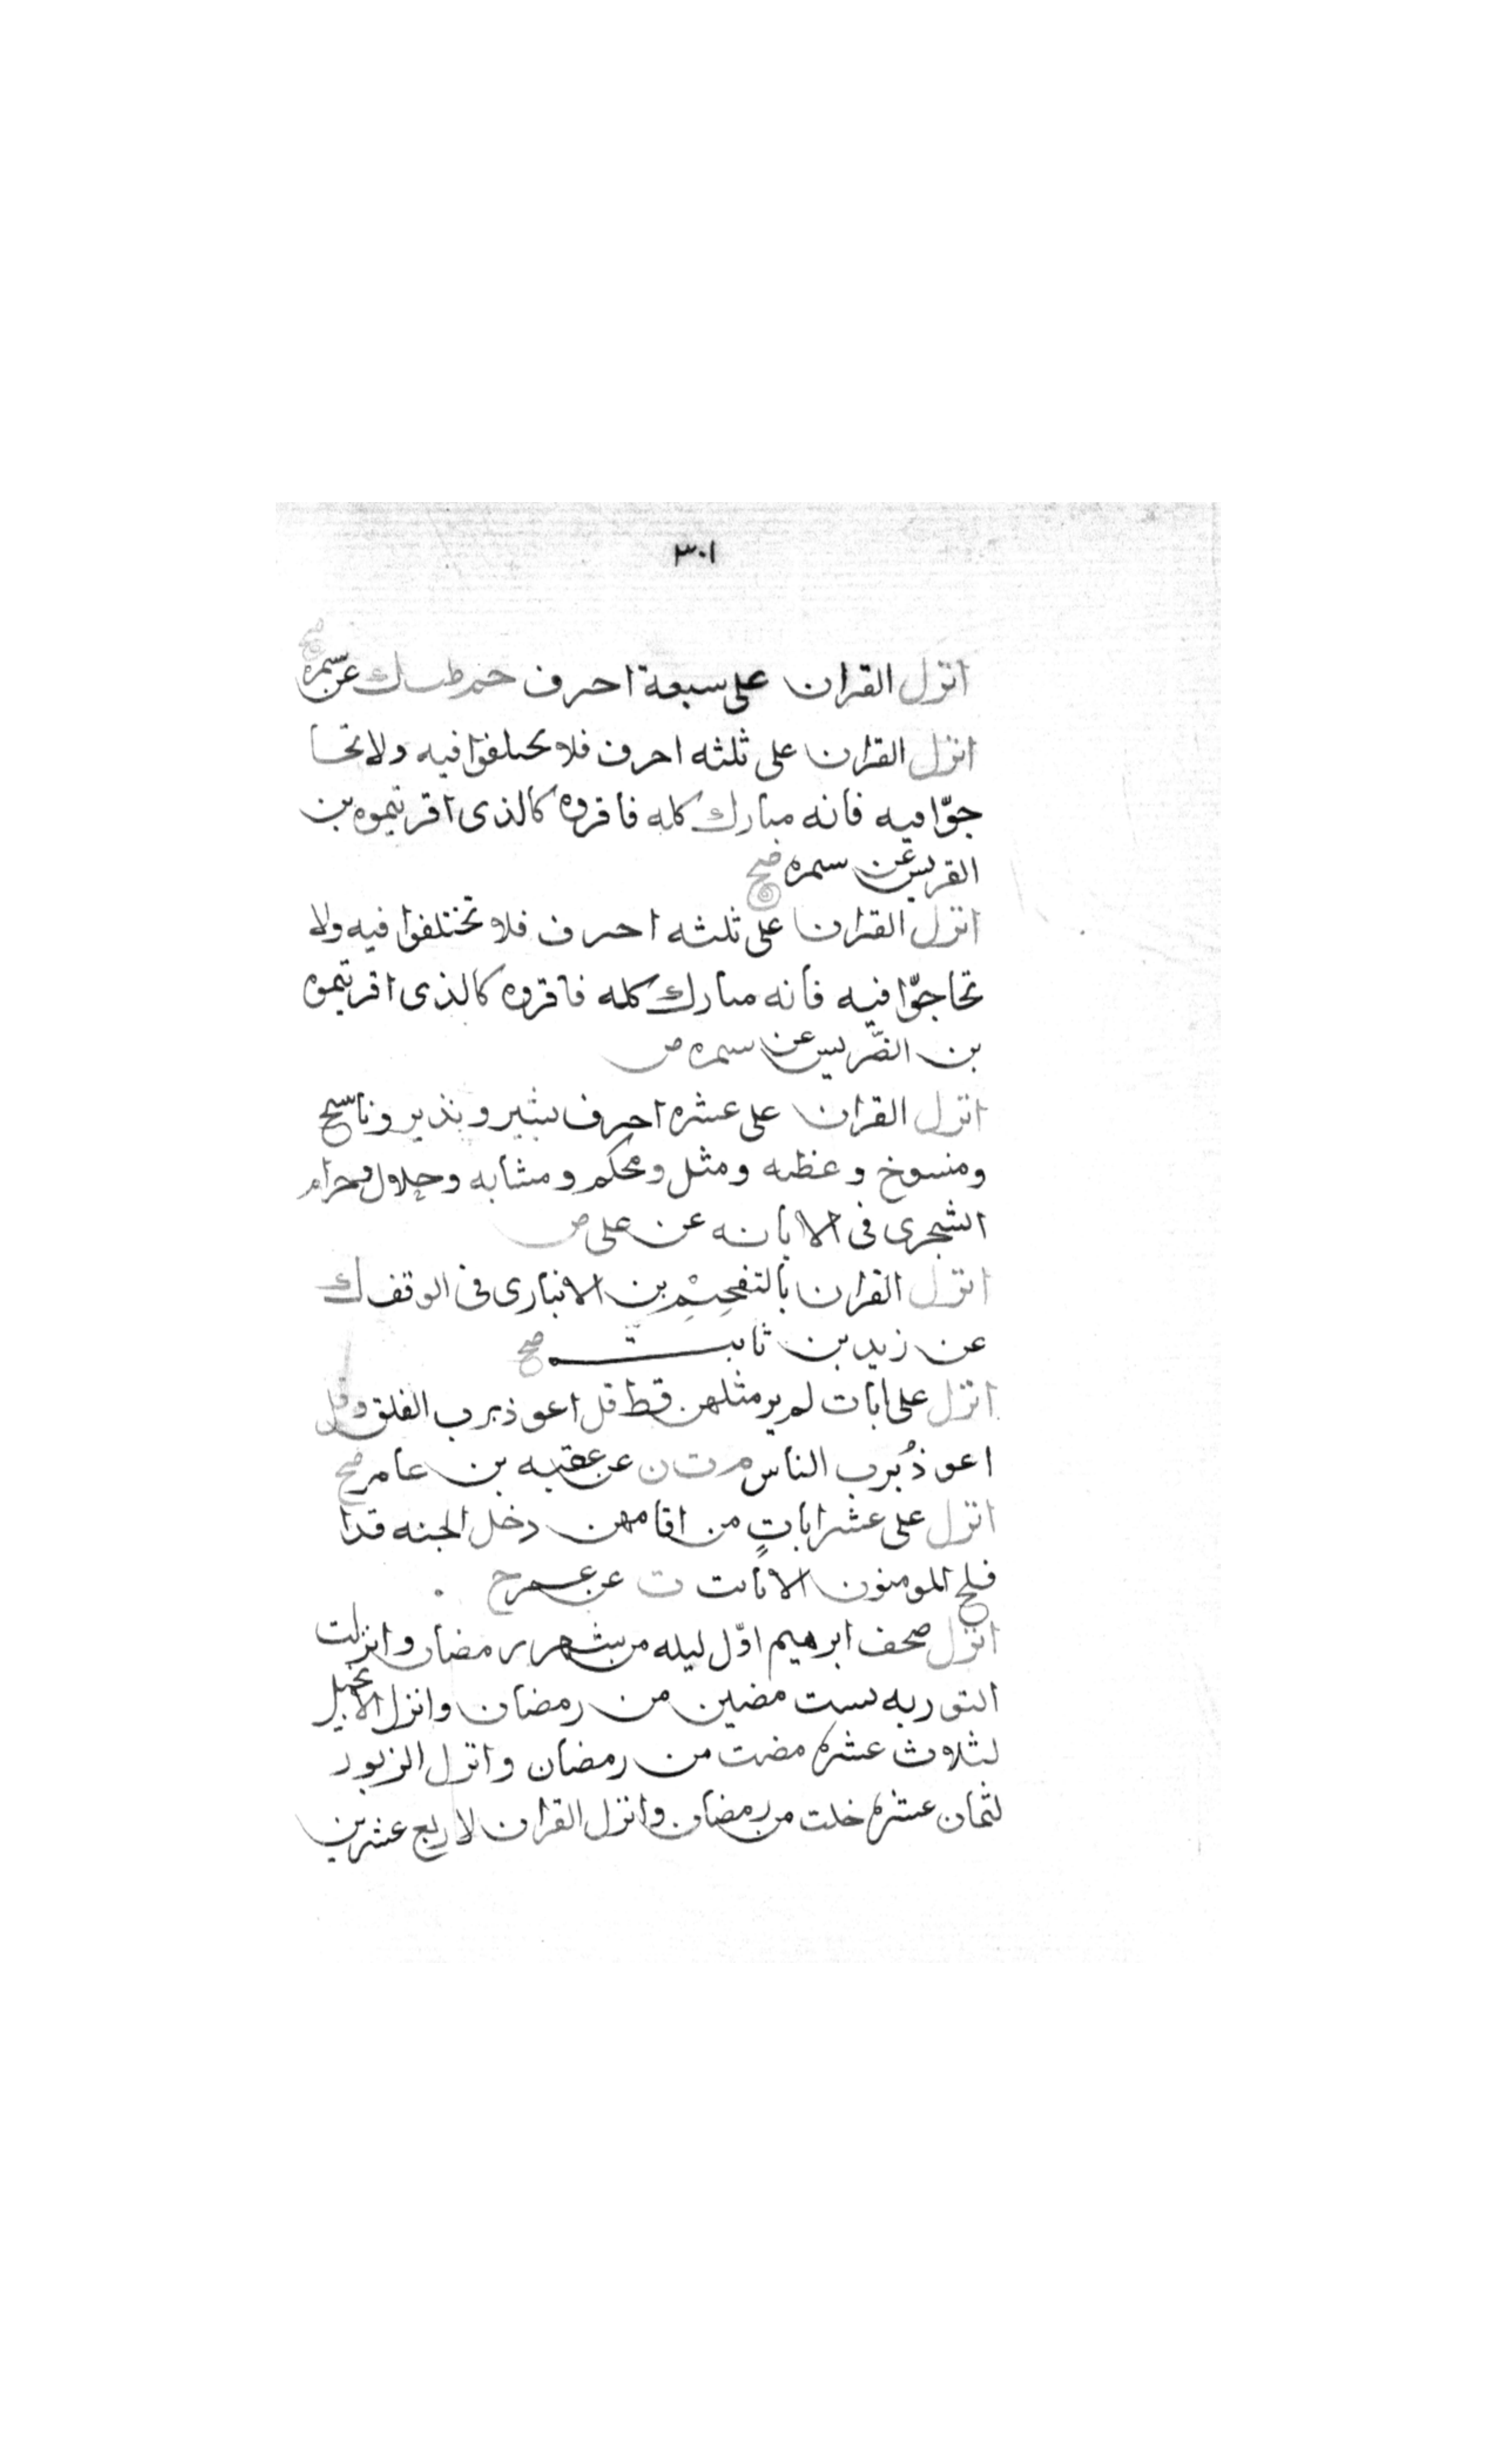 ٣٠١
انزل القران على سبعة احرف حم طب ك عن سمره صح
انزل القران على ثلثه احرف فلا تختلفوا فيه ولا تحا
جوّا فيه فانه مبارك كله فاقروه كالذى اقريتموه بن
القريس عن سمره صح
انزل القران على ثلثه احرف فلا تختلفوا فيه ولا
تحاجوّا فيه فانه مبارك كله فاقروه كالذى اقريتموه
بن الضّريس عن سمره ض
انزل القران على عشره احرف بشير ونذير وناسخ
ومنسوخ وعظه ومثل ومحكم ومتشابه وحلال وحرام
الشجرى فى الابانه عن على ض
انزل القران بالتفخيم بن الانبارى فى الوقف ك
عن زيد بن ثابت صح
انزل على ايات لم ير مثلهن قط قل اعوذ برب الفلق وقل
اعوذ برب الناس م ت ن عن عقبه بن عامر صح
انزل على عشر اياتٍ من اقامهن دخل الجنه قد ا
فلح المومنون الايات ت عن عمر ح
انزل صحف ابرهيم اوّل ليله من شهر رمضان وانزلت
التوريه لست مضين من رمضان وانزل الانجيل
لثلاث عشره مضت من رمضان وانزل الزبور
لثمان عشره خلت من رمضان وانزل القران لاربع عشرين